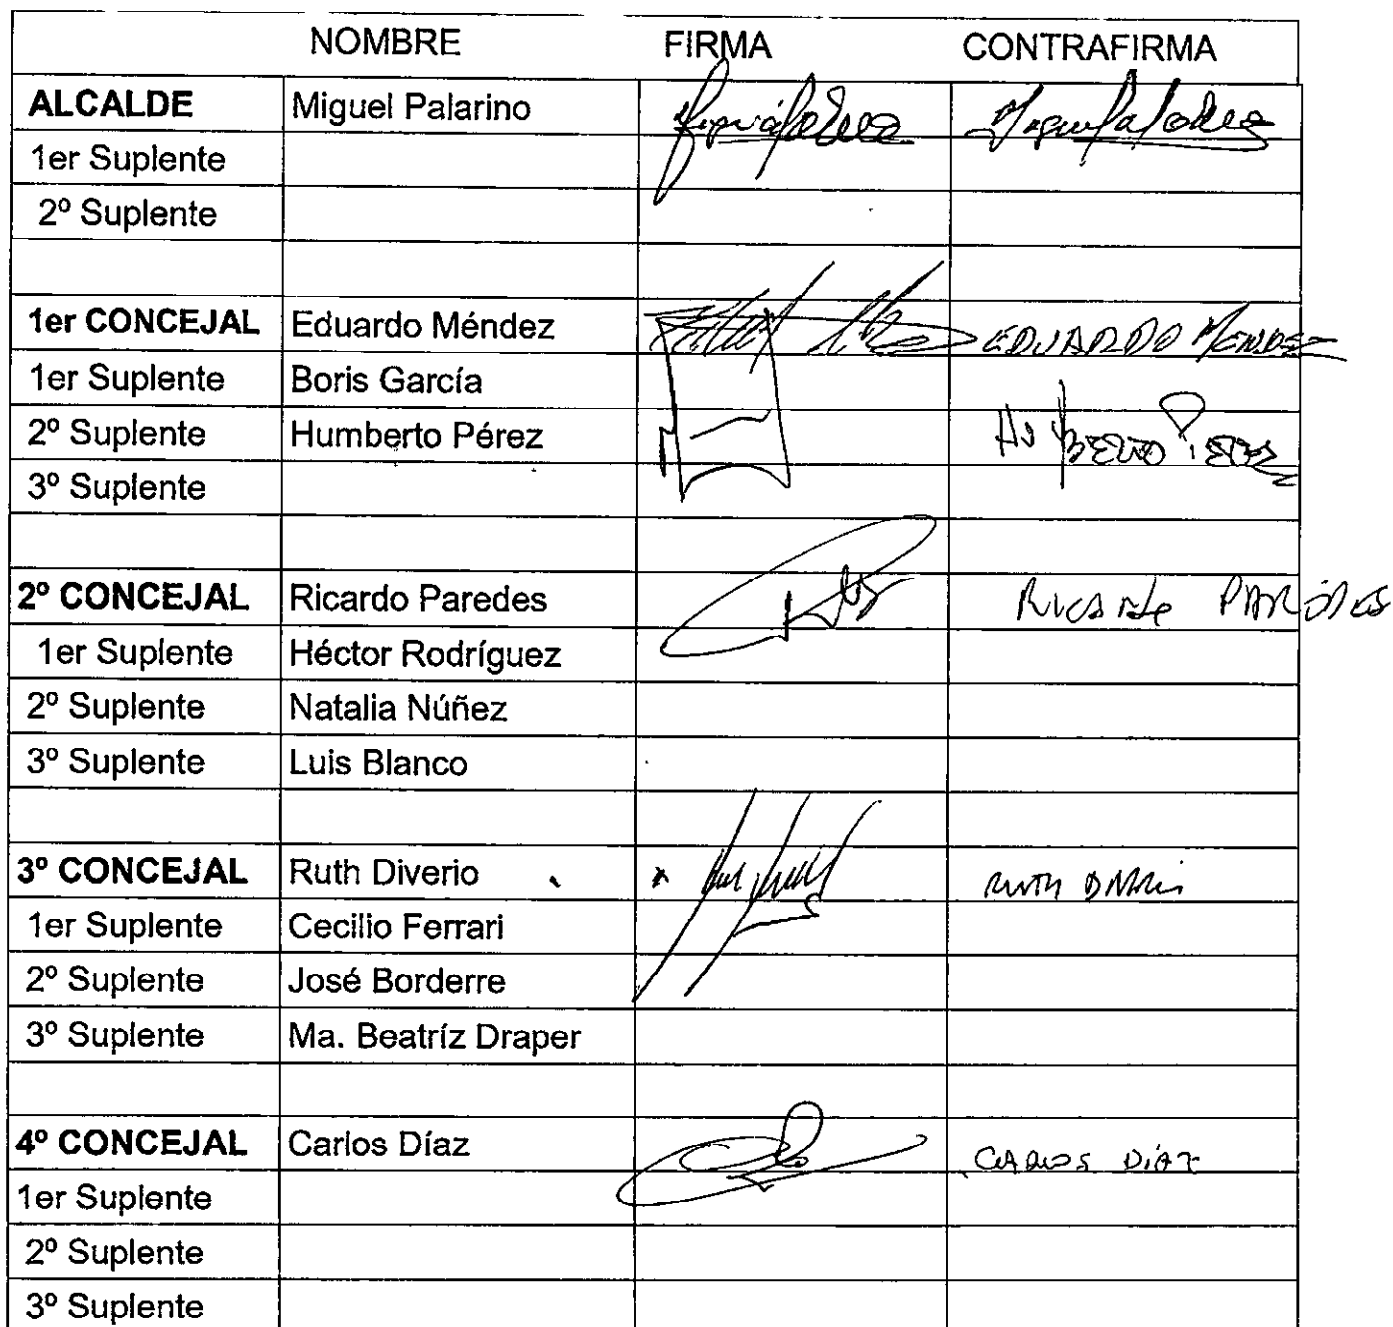 NOMBRE FIRMA CONTRAFIRMA
ALCALDE Miguel Palarino
1er Suplente
2º Suplente
1er CONCEJAL Eduardo Méndez EDUARDO MENDEZ
1er Suplente Boris García
2º Suplente Humberto Pérez
3º Suplente
2º CONCEJAL Ricardo Paredes
1er Suplente Héctor Rodríguez
2º Suplente Natalia Núñez
3º Suplente Luis Blanco
3º CONCEJAL Ruth Diverio RUTH
1er Suplente Cecilio Ferrari
2º Suplente José Borderre
3º Suplente Ma. Beatríz Draper
4º CONCEJAL Carlos Díaz CARLOS DíAZ
1er Suplente
2º Suplente
3º Suplente